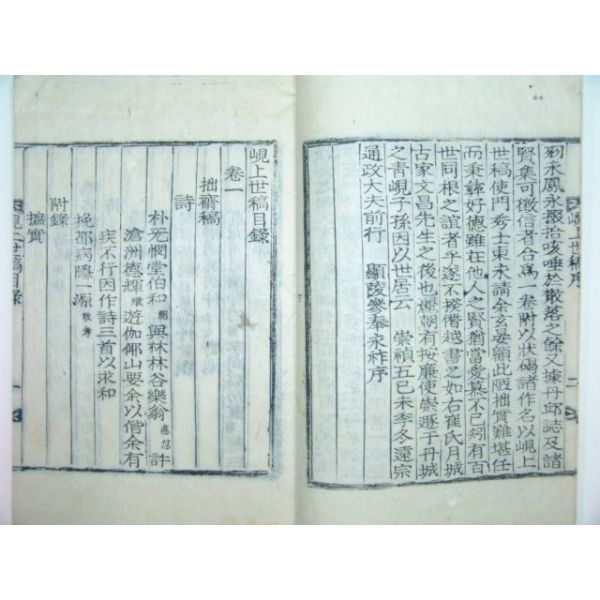 列永鳳永聚拾咳唾於散落之餘又據丹邱誌及諸
賢集可徵信者合爲一卷附以狀碣諸作名以峴上
世稿使門秀士東永請余玄晏顧此陋拙實難堪任
而秉彛好德雖在他人之賢猶當愛慕不已矧有百
世同根之誼者乎遂不揆僭越書之如右崔氏月城
古家文昌先生之後也 朝有按廉使崇遯于丹城
之青峴子孫因以世居云 崇禎五己未李冬遠宗
通政大夫前行 顯陵參奉永祚序
峴上世稿序
一
峴上世稿目錄
卷一
拙齋稿
詩
朴无憫堂伯和 與林林谷樂翁 許
滄洲德輝 遊伽倻山要余以偕余有
疾不行因作詩三首以求和
挽都病隱一源 敬孝
附錄
摭實
峴上世稿目錄
一